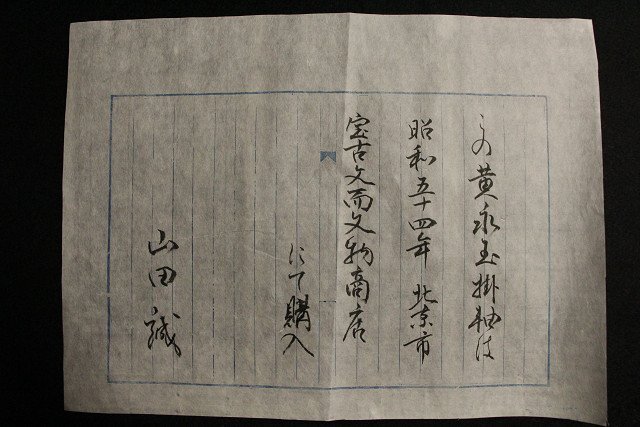 この黄永玉掛軸は
昭和五十四年 北京市
宝古文而文物商店
にて購入
山田誠